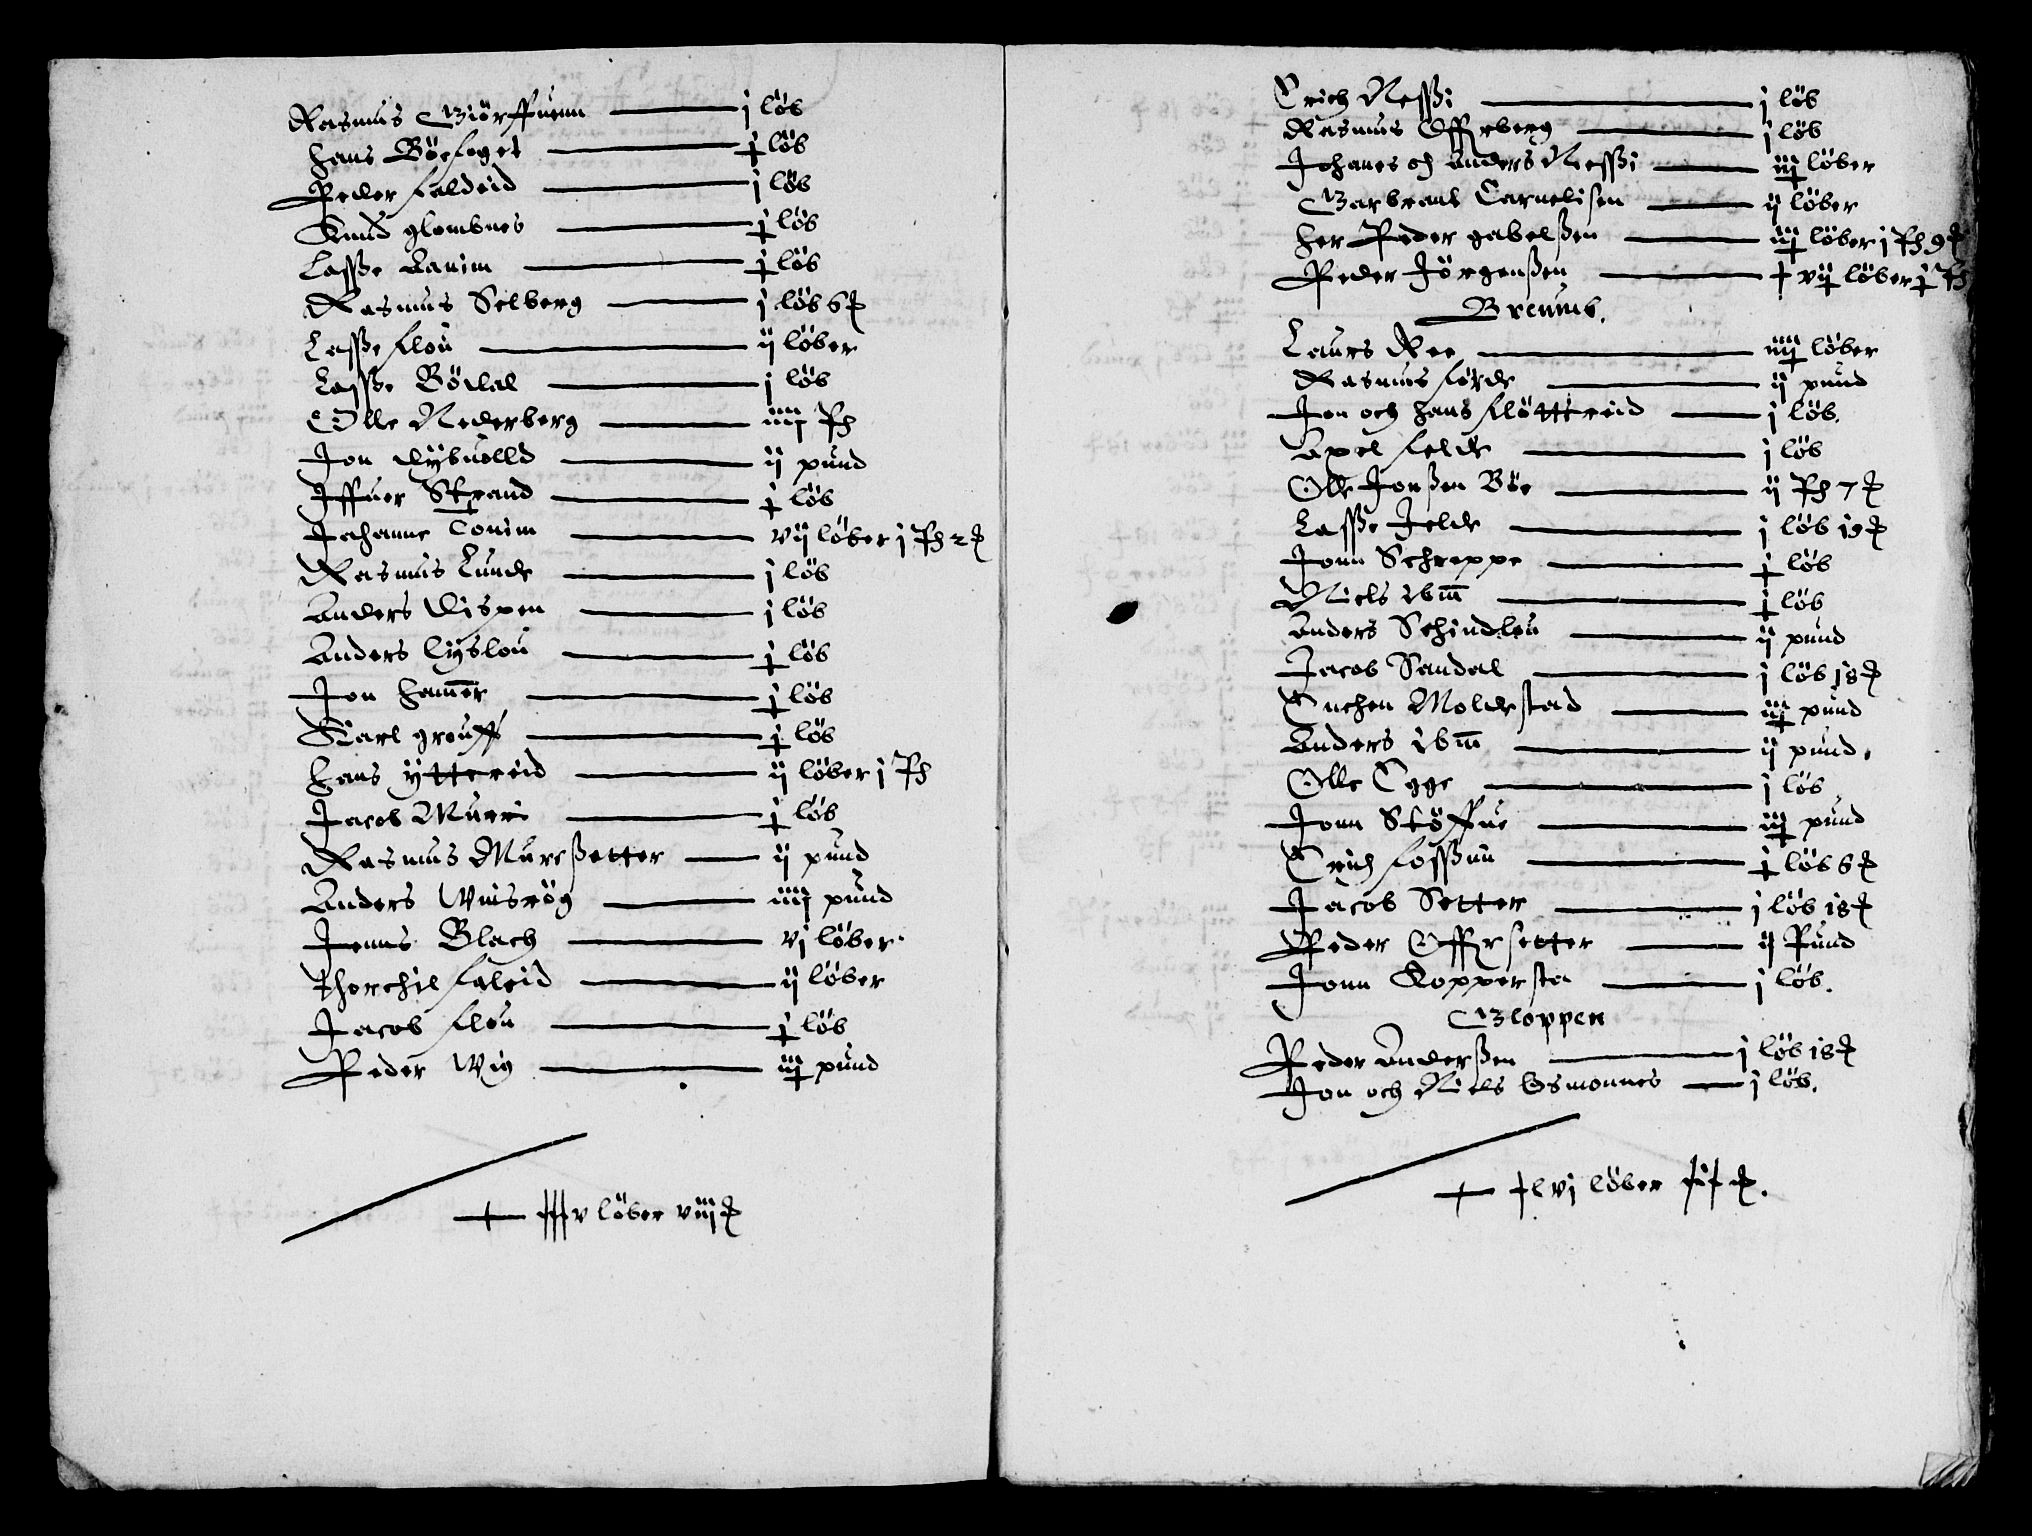 Rasmus Giörffuenn — j löb
Hans Böefoget — ɉ löb
Peder Faldeid — j löb
Knud glombnes — ɉ löb
Lasße Lanim — ɉ löb
Rasmus Selberg — j löb 6 ℔
Lasße Flou — ij löber
Lasße Bödal — j löb
Olle Nederberg — iiij Pd
Jon Dybuolld — ij pund
Iffuer Strand — ɉ löb
Johanne Tonim — vij löber j Pd 2 ℔
Rasmus Lunde — j löb
Anders Vispen — j löb
Anders Oyslou — ɉ löb
Jon Ham̄er — ɉ löb
Karl greuff — ɉ löb
Hans Yttereid — ij löber j Pd
Jacob Mueri — ɉ löb
Rasmus Murcßetter — ij pund
Anders Wiisrög — iiij pund
Jenns Blach — vj löber
Thorchil Faleid — ij löber
Jacob Flou — ɉ löb
Peder Wig — iiɉ pund
v löber viij ℔
Erich Nesßi — j löb
Rasmus Offreberg — j löb
Johanes och Anders Nesßi — iiɉ löber
Garbrant Carnelisen — ij löber
Her Peder gabelßen — iiɉ löber j Pd 9 ℔
Peder Jörgenßen — vɉ löber ɉ Pd
Bremmb.
Laurs Ree — iiiɉ löber
Rasmus Förde — ij pund
Jon och Hans Flötttreid — j löb.
Axel Felde — j löb
Olle Jonßen Böe — ij Pd 7 ℔
Lasße Jelde — j löb 19 ℔
Jonn Schreppe — ɉ löb
Niels ibm̄ — ɉ löb
Anders Schindlou — ij pund
Jacob Sandal — j löb 18 ℔
Enchen Moldestad — iiɉ pund
Anders ibm̄ — ij pund.
Olle Egge — j löb
Jonn Stöffue — iiɉ pund
Erich Fosßim — ɉ löb 6 ℔
Jacob Setter — j löb 18 ℔
Peder Offrsetter — ij Pund
Jonn Koppersta — j löb.
Gloppen
Peder Anderßen — j löb 18 ℔
Jon och Niels Osmonnes — j löb.
lvj löber ℔.